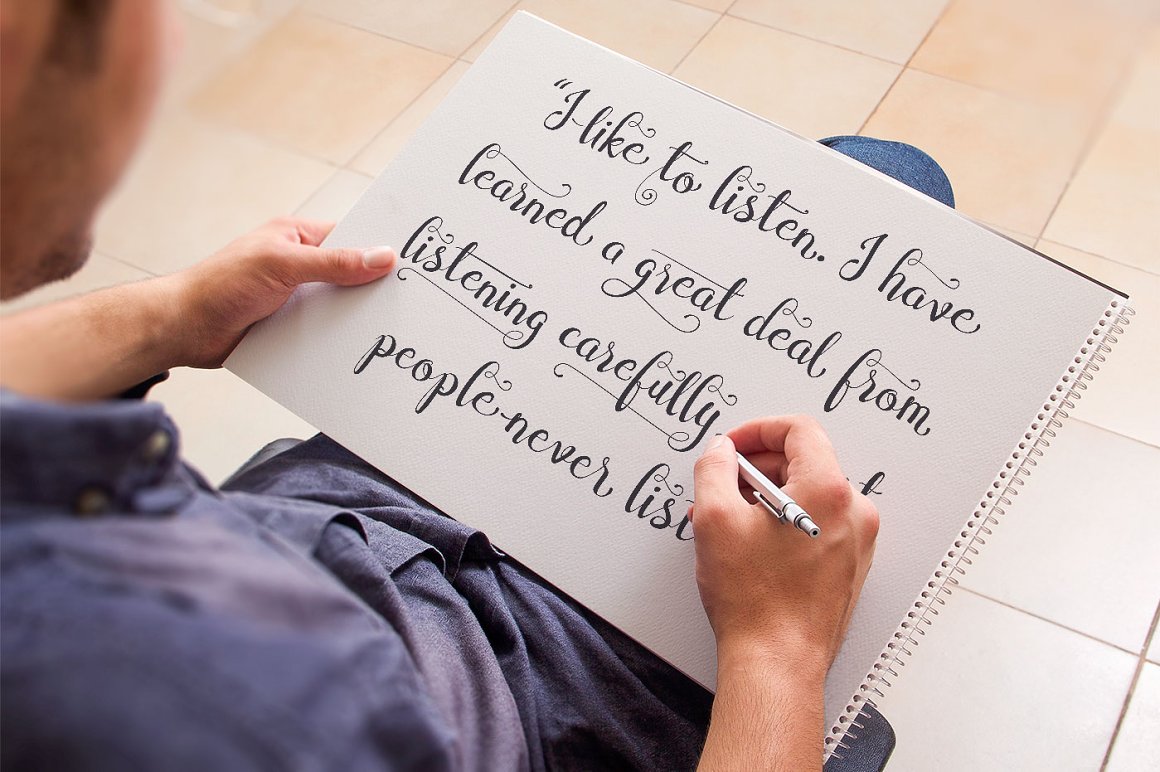 “I like to listen. I have
learned a great deal from
listening carefully.
people never